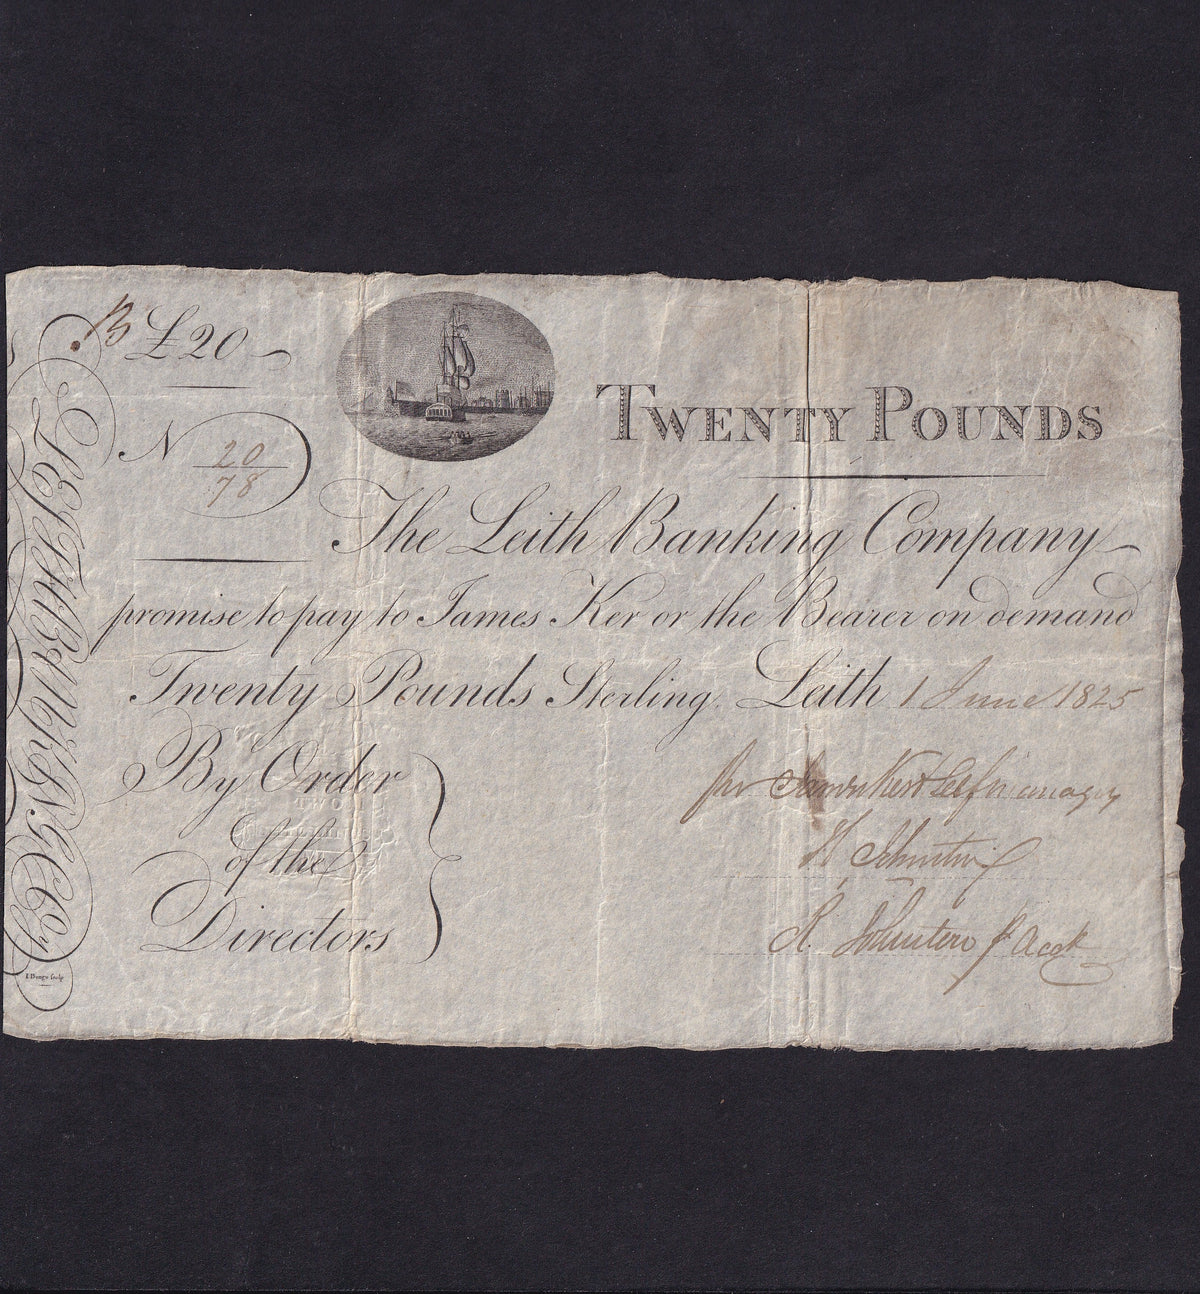 B £20
TWENTY POUNDS
N 20/78
The Leith Banking Company
promise to pay to James Ker or the Bearer on demand
Twenty Pounds Sterling. Leith 1 June 1825
By Order
of the
Directors
TWO
per James Ker & Self manager
H Johnston
R. Johnston p. Acct